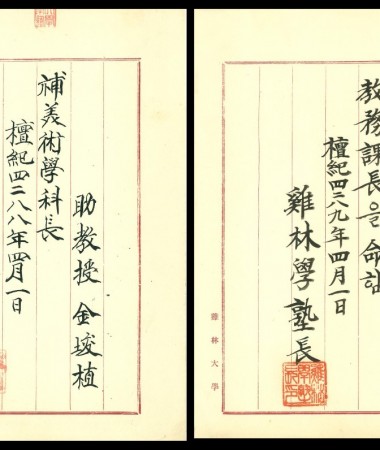 助教授 金埈植
補美術學科長
檀紀四二八八年四月一日
教務課長을 命함
檀紀四二八九年四月一日
雞林學塾長
雞林大學